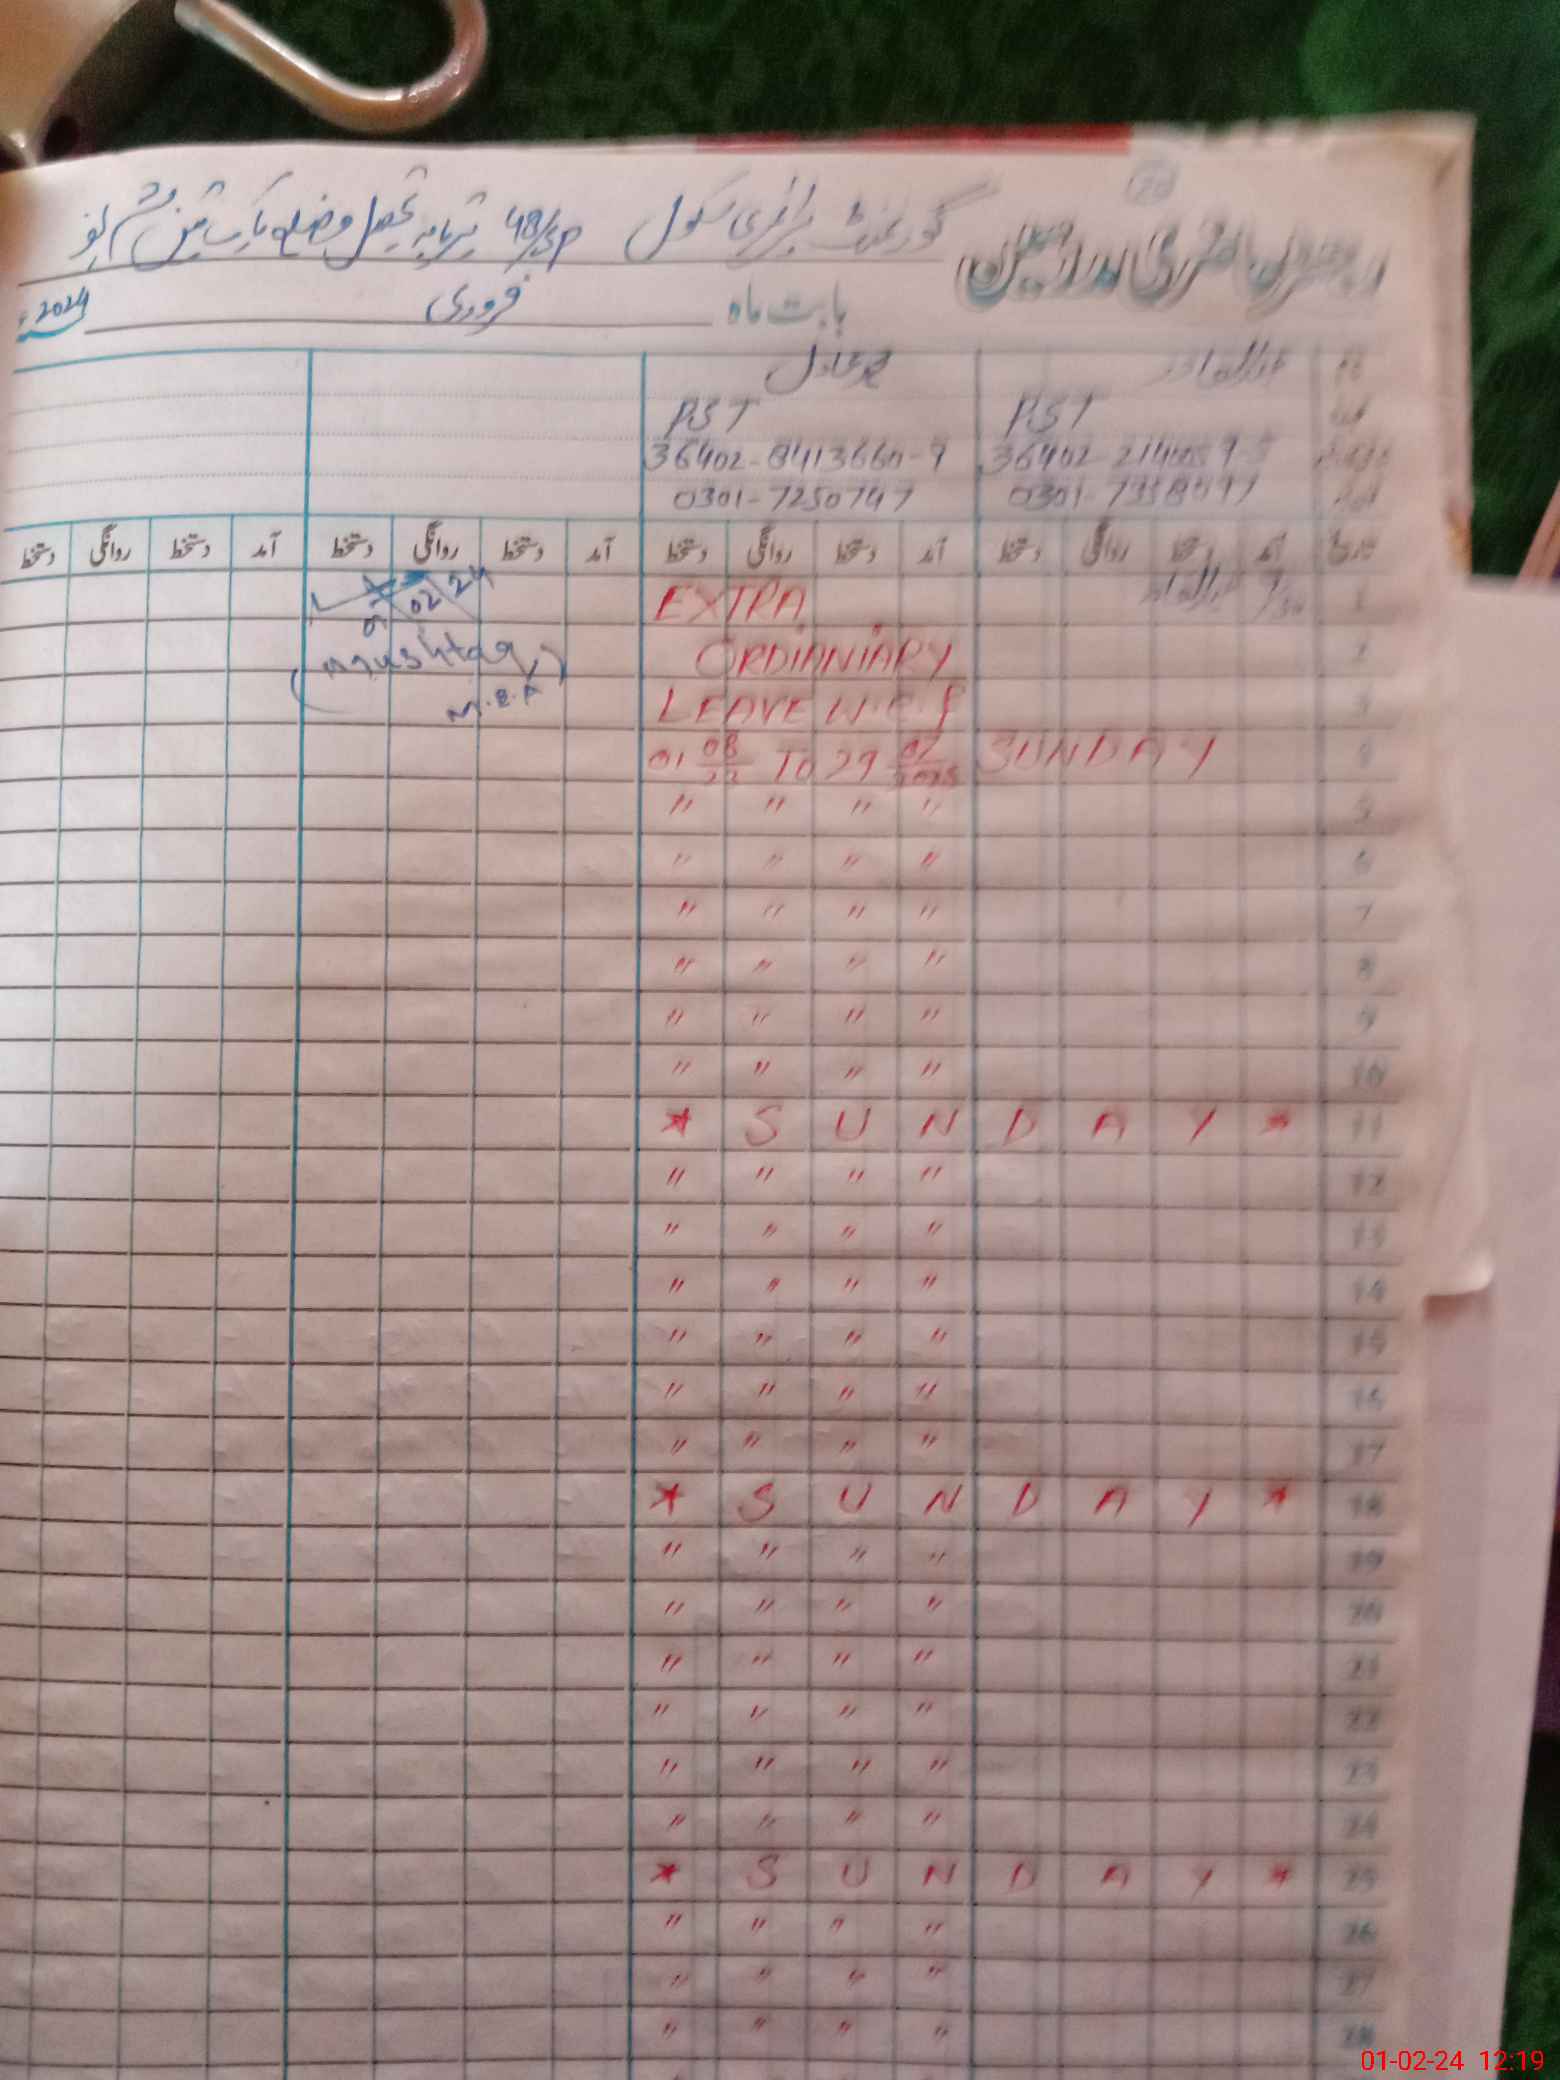 رجسٹر حاضری مدرسین گورنمنٹ پرائمری سکول 48/SP تحصیل و ضلع پاکپتن شریف
بابت ماہ فروری 2024
PST PST
36402-8413660-9
0301-7250747
تاریخ آمد دستخط روانگی دستخط آمد دستخط روانگی دستخط آمد دستخط روانگی دستخط آمد دستخط روانگی دستخط
1 EXTRA 02 24
2 ORDIANIARY (Mushtaq)
3 LEAVE W.E.F M.E.A
4 SUNDAY 01 08/22 To 29 07/2025
5 " " " "
6 " " " "
7 " " " "
8 " " " "
9 " " " "
10 " " " "
11 * S U N D A Y *
12 " " " "
13 " " " "
14 " " " "
15 " " " "
16 " " " "
17 " " " "
18 * S U N D A Y *
19 " " " "
20 " " " "
21 " " " "
22 " " " "
23 " " " "
24 " " " "
25 * S U N D A Y *
26 " " " "
27 " " " "
28 " " " "
01-02-24 12:19